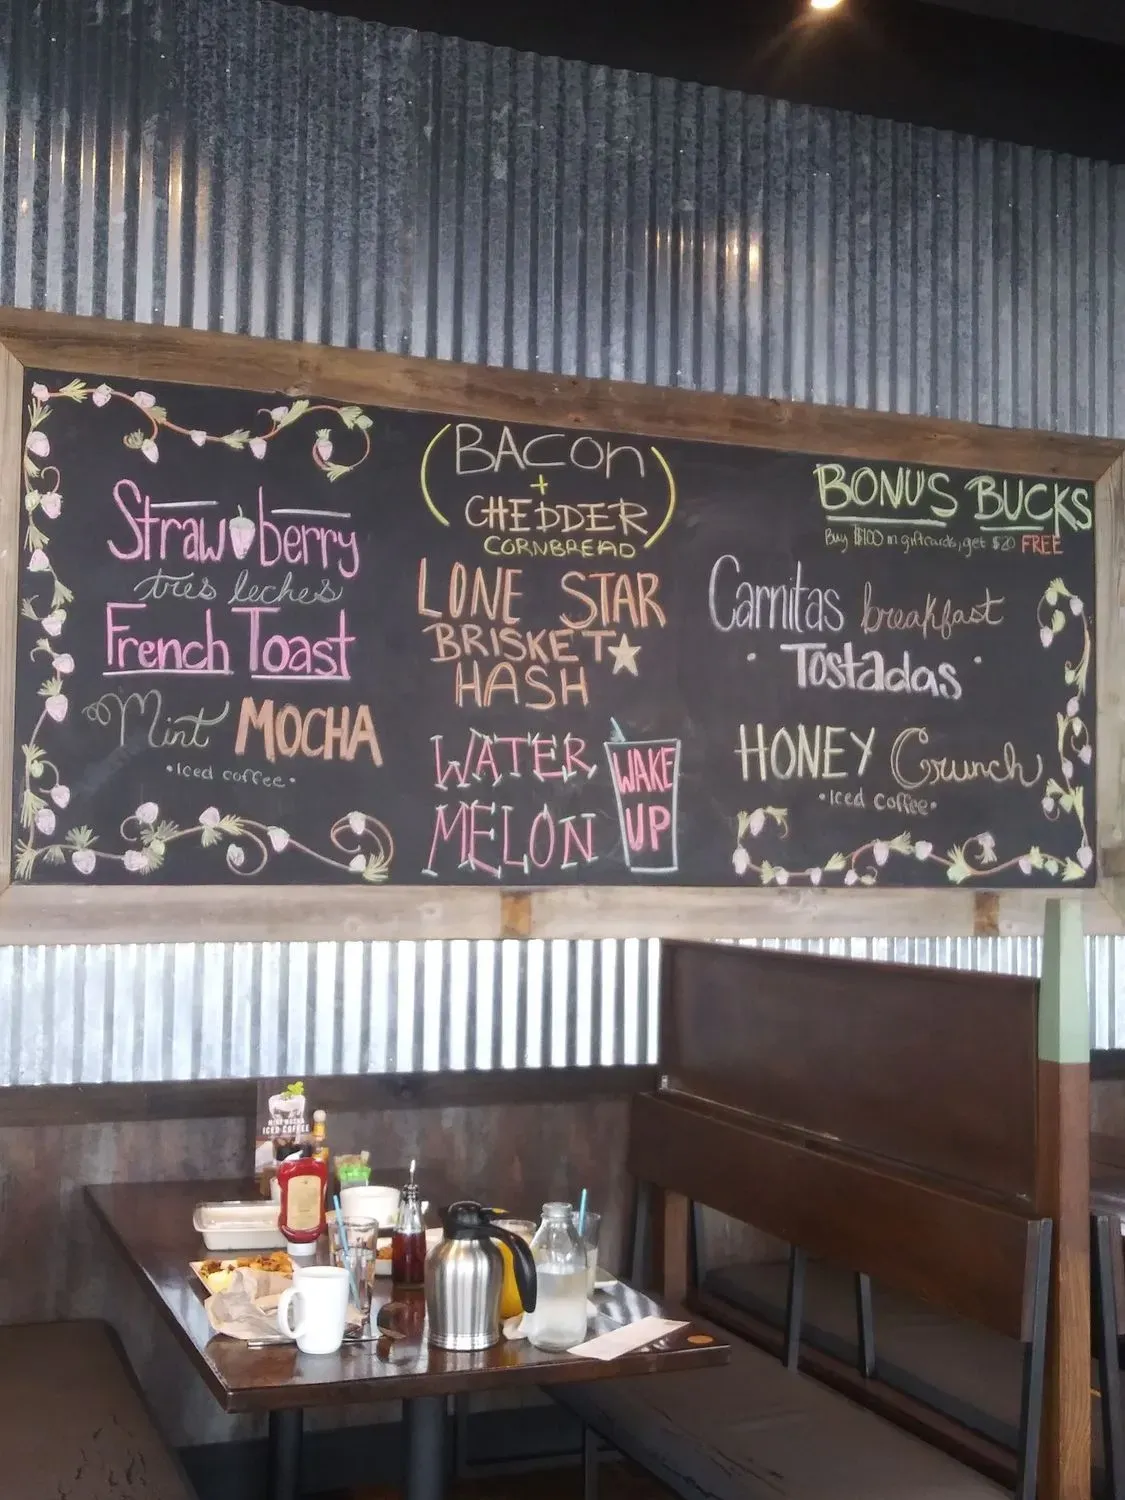 Strawberry
tres leches
French Toast
Mint MOCHA
•Iced coffee•
(BACON
+
CHEDDER)
CORNBREAD
LONE STAR
BRISKET
HASH
WATER
MELON
WAKE
UP
BONUS BUCKS
Buy $100 in giftcards, get $20 FREE
Carnitas breakfast
• Tostadas •
HONEY Crunch
•Iced Coffee•
MINT MOCHA
ICED COFFEE